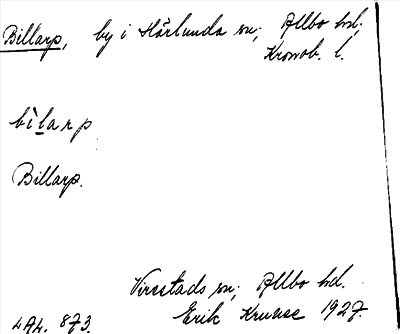 Billarp, by i Härlunda sn; Allbo hd;
Kronob. l.
bìlarp
Billarp.
Virestads sn; Allbo hd.
LAL. 873. Erik Kruuse 1927.